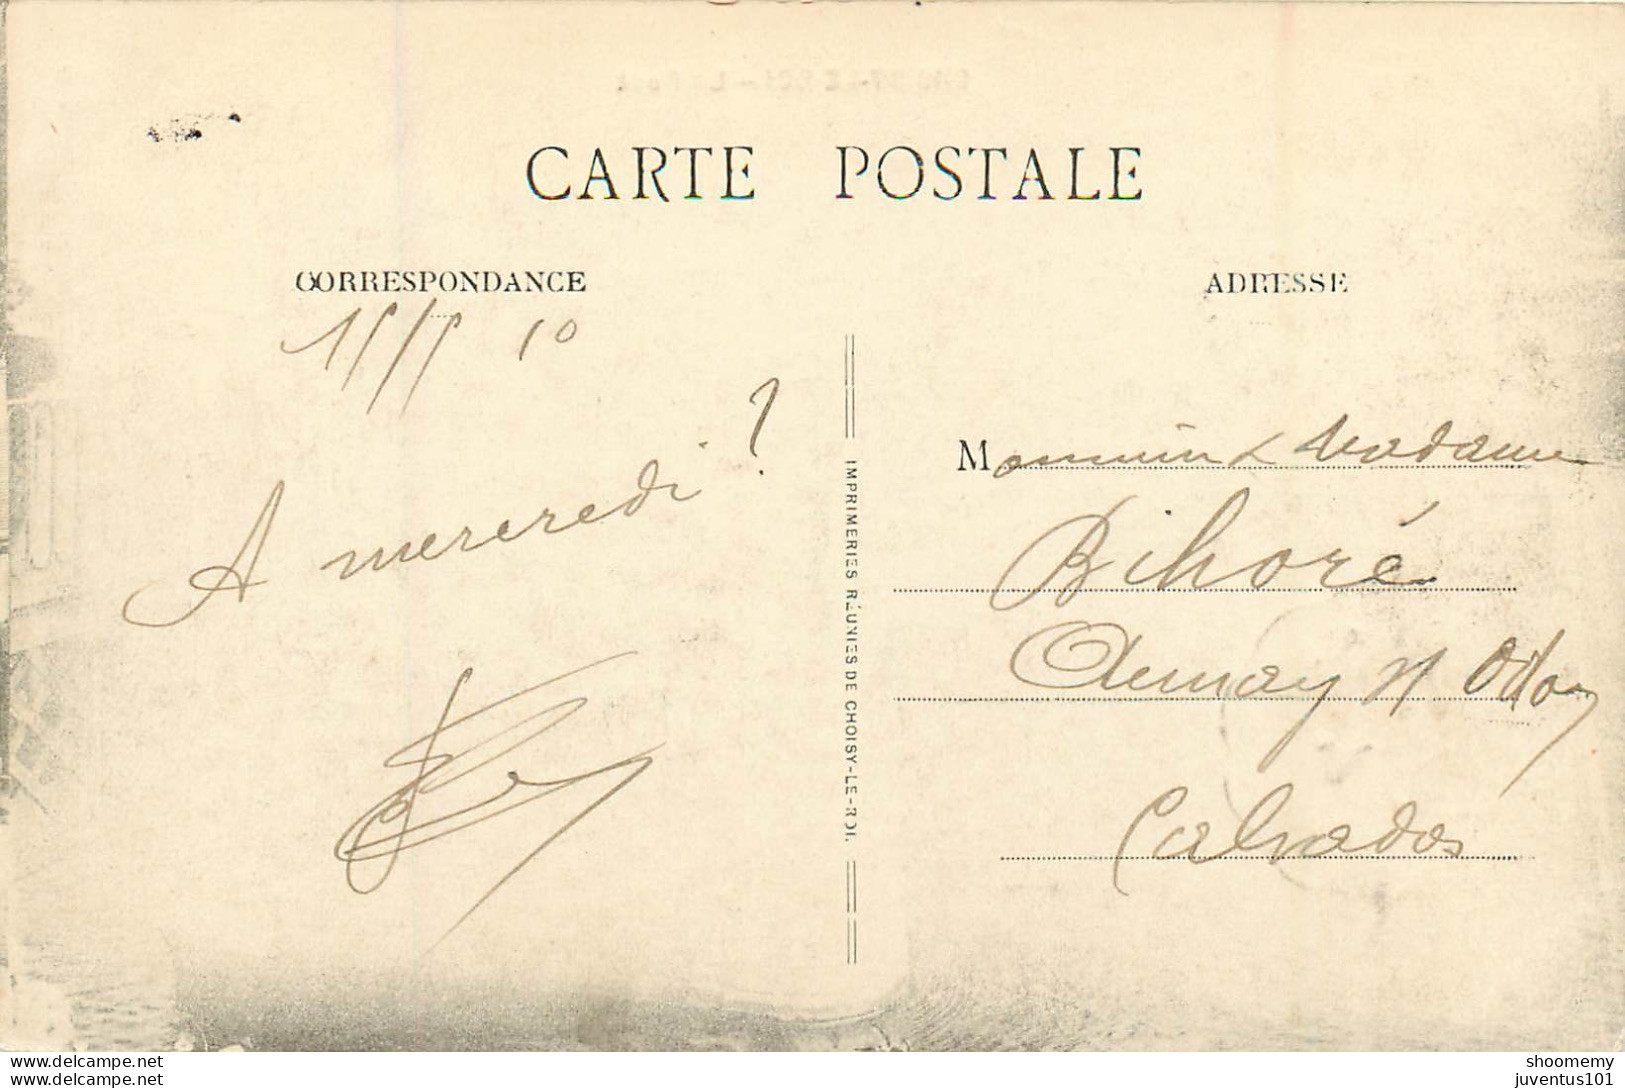 CARTE POSTALE
CORRESPONDANCE
15/5 10
A mercredi ?
IMPRIMERIES RÉUNIES DE CHOISY-LE-ROI.
ADRESSE
Monsieur & Madame
Bihoré
Aunay s/ Odon
Calvados
www.delcampe.net
www.delcampe.net
shoomemy
juventus101